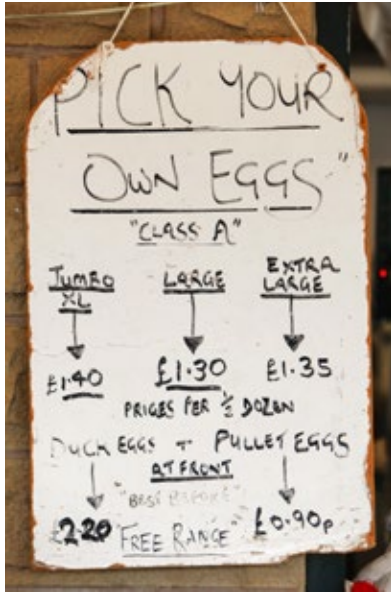 PICK YOUR
OWN EGGS"
"CLASS A"
JUMBO XL
LARGE
EXTRA LARGE
£1.40
£1.30
£1.35
PRICES PER ½ DOZEN
DUCK EGGS + PULLET EGGS
AT FRONT
"BEST BEFORE"
£2.20
"FREE RANGE"
£0.90p